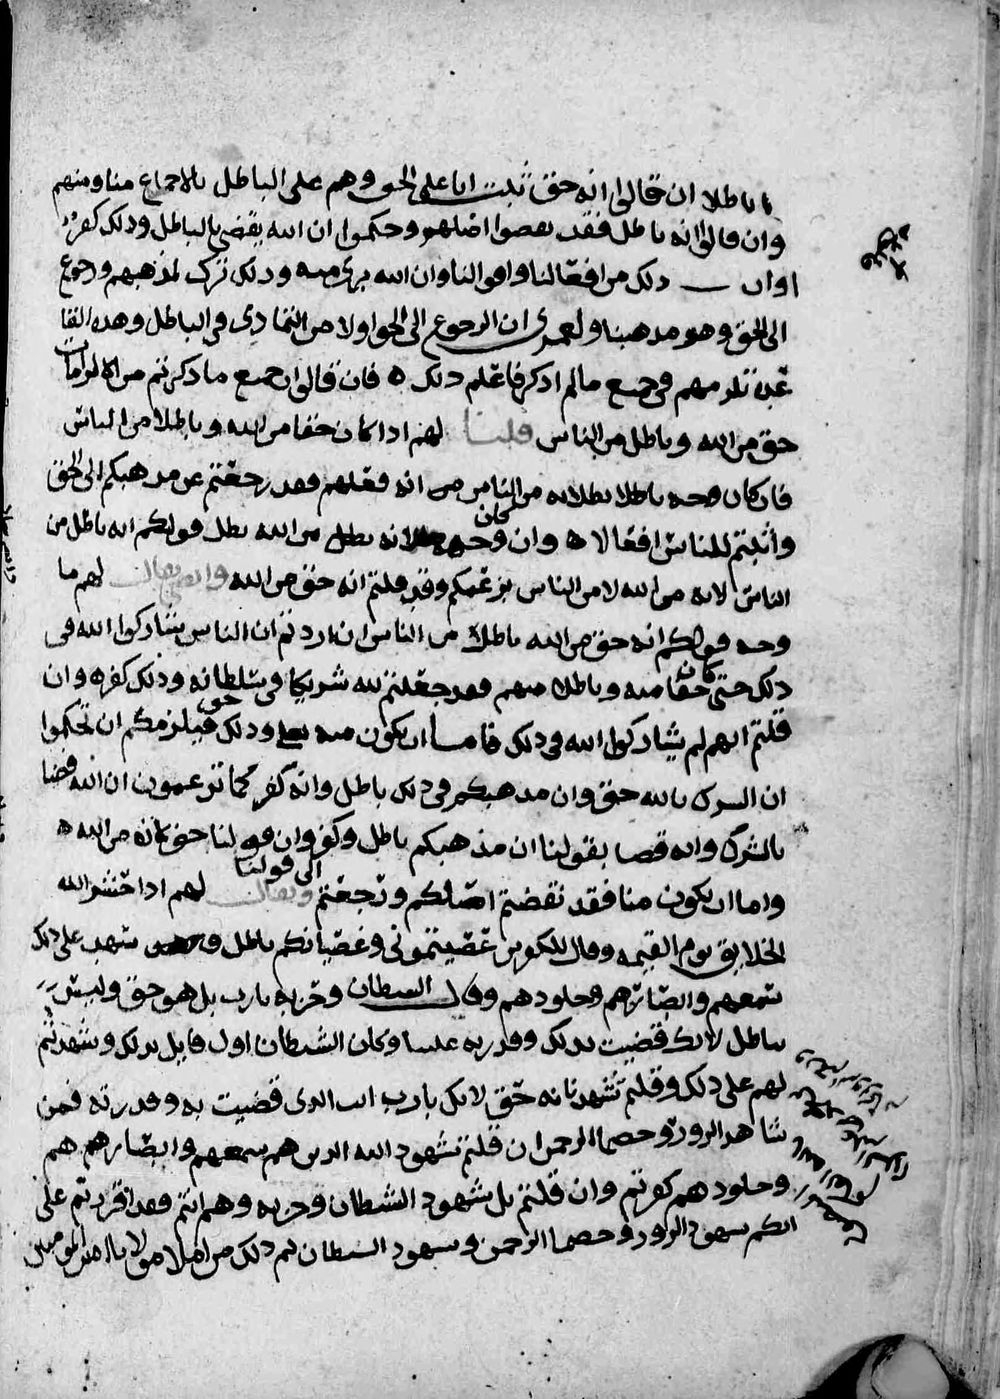 باطلا ان قالوا انه حق ثبت انا على الحق وهم على الباطل بالاجماع منا ومنهم
وان قالوا انه باطل فقد نقضوا اصلهم وحكموا ان الله يقضي بالباطل وذلك كفر
او ان ذلك من افعالنا واقوالنا وان الله بري منه وذلك ترك لمذهبهم ورجوع
الى الحق وهو مذهبنا ولعمري ان الرجوع الى الحق اولا من التمادي في الباطل وهذه
تلزمهم في جميع مالم اذكر فاعلم ذلك ه فان قالوا ان جميع ما ذكرتم من الالزامات
حق من الله وباطل من الناس قلنا لهم اذا كان حقا من الله وباطلا من الناس
فان كان وجه باطلا بطلانه من الناس انه فعلهم فقد رجعتم عن مذهبكم الى الحق
واثبتم للناس افعالا ه وان كان وجه بطلانه من الله بطل قولكم انه باطل من
الناس لانه من الله لا من الناس بزعمكم وقد قلتم انه حق من الله يقال لهم ما
وجه قولكم انه حق من الله باطلا من الناس ان اردتم ان الناس يشاركوا الله في
ذلك حتى كان حقا منه وباطلا منهم فقد جعلتم لله شريكا في سلطانه وذلك كفر ه وان
قلتم انهم لم يشاركوا الله في ذلك فاما ان يكون منه وذلك حق فيلزمكم ان تحكموا
ان الشرك بالله حق وان مذهبكم في ذلك باطل وانه كفر كما تزعمون ان الله قضا
بالشرك وانه قضا بقولنا ان مذهبكم باطل وكفر وان قولنا حق لانه من الله ه
واما ان يكون منا فقد نقضتم اصلكم ورجعتم الى قولنا ويقال لهم اذا حشر الله
الخلايق يوم القيمه وقال للكفرين عصيتموني وعصيانكم باطل شهد على ذلك
سمعهم وابصارهم وجلودهم وقال الشيطان وحزبه يا رب بل هو حق وليس
بباطل لانك قضيت بذلك وقدرته علينا وكان الشيطان اول قايل بذلك وشهدتم
لهم على ذلك وقلتم نشهد بانه حق لانك يا رب انت الذي قضيت به وقدرته فمن
شاهد الزور وخصما الرحمن ان قلتم شهود الله الذين هم سمعهم وابصارهم هم
وجلودهم كفرتم وان قلتم بل شهود الشيطان وحزبه وهم انتم فقد اقررتم على
انكم شهود الزور وخصما الرحمن وشهود الشيطان ثم ذلك من